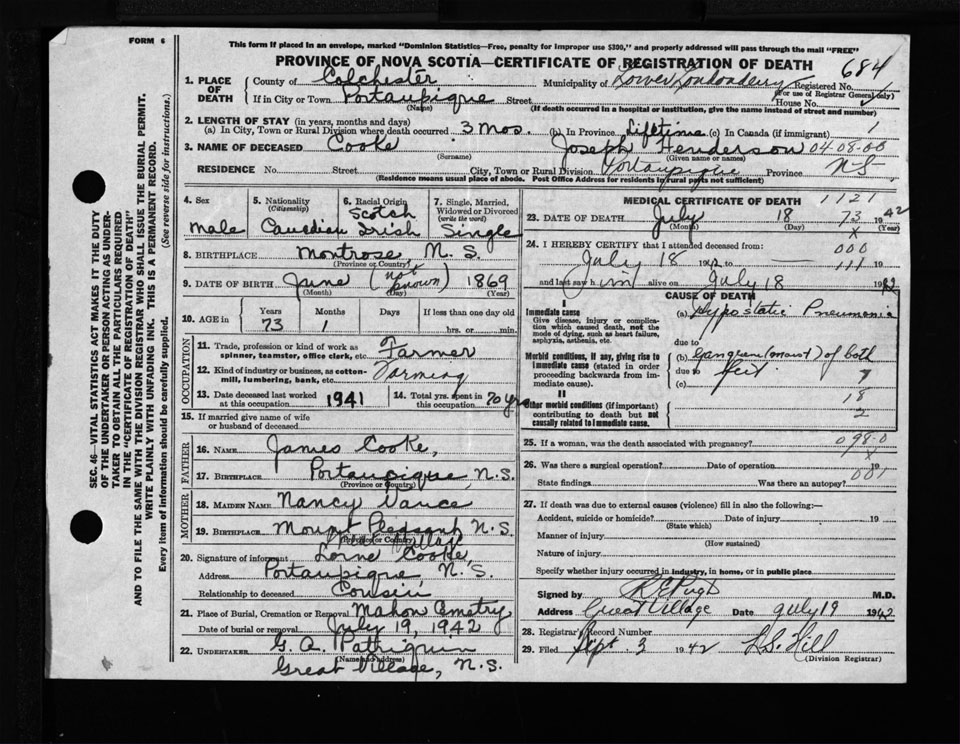 FORM 6
This form if placed in an envelope, marked "Dominion Statistics—Free, penalty for improper use $300," and properly addressed will pass through the mail "FREE"
PROVINCE OF NOVA SCOTIA—CERTIFICATE OF REGISTRATION OF DEATH
684
1. PLACE OF DEATH
County of Colchester Municipality of Lower Londonderry Registered No.
(For use of Registrar General only)
If in City or Town Portaupique Street House No.
(Name)
(If death occurred in a hospital or institution, give the name instead of street and number)
2. LENGTH OF STAY (in years, months and days)
(a) In City, Town or Rural Division where death occurred 3 mos. (b) In Province Lifetime (c) In Canada (if immigrant) 1
3. NAME OF DECEASED Cooke Joseph Henderson 04-08-00
(Surname) (Given name or names)
RESIDENCE No. Street City, Town or Rural Division Portaupique Province N.S.
(Residence means usual place of abode. Post Office Address for residents of rural parts not sufficient)
4. Sex
male
5. Nationality
(Citizenship)
Canadian
6. Racial Origin
Scotch
Irish
7. Single, Married, Widowed or Divorced
(write the word)
Single
8. BIRTHPLACE Montrose N. S.
(Province or Country)
9. DATE OF BIRTH June (not known) 1869
(Month) (Day) (Year)
10. AGE in Years Months Days If less than one day old
73 1 hrs. or min.
OCCUPATION
11. Trade, profession or kind of work as spinner, teamster, office clerk, etc. Farmer
12. Kind of industry or business, as cotton-mill, lumbering, bank, etc. Farming
13. Date deceased last worked at this occupation 1941
14. Total yrs. spent in this occupation 70 yrs
15. If married give name of wife or husband of deceased
FATHER
16. NAME James Cooke,
17. BIRTHPLACE Portaupique, N.S.
(Province or Country)
MOTHER
18. MAIDEN NAME Nancy Vance
19. BIRTHPLACE Mount Pleasant N.S.
(Province or Country)
20. Signature of informant Lorne Cooke,
Address Portaupique, N.S.
Relationship to deceased Cousin
21. Place of Burial, Cremation or Removal Mahon Cmetry
Date of burial or removal July 19, 1942
22. UNDERTAKER G. A. Patriquin
(Name and address)
Great Village, N.S.
MEDICAL CERTIFICATE OF DEATH
1121
23. DATE OF DEATH July 18 73 1942
(Month) (Day) (Year)
x
24. I HEREBY CERTIFY that I attended deceased from:
000
July 18 1942 to 111 19
and last saw him alive on July 18 1942
CAUSE OF DEATH
I
Immediate cause
Give disease, injury or complication which caused death, not the mode of dying, such as heart failure, asphyxia, asthenia, etc.
(a) Hypostatic Pneumonia
due to
Morbid conditions, if any, giving rise to immediate cause (stated in order proceeding backwards from immediate cause).
(b) Gangrene (moist) of both
due to feet
(c)
II
Other morbid conditions (if important) contributing to death but not causally related to immediate cause.
18
2
25. If a woman, was the death associated with pregnancy? 098-0
x
26. Was there a surgical operation? Date of operation 19
State findings Was there an autopsy? 001
27. If death was due to external causes (violence) fill in also the following:—
Accident, suicide or homicide? Date of injury 19
(State which)
Manner of injury
(How sustained)
Nature of injury
Specify whether injury occurred in industry, in home, or in public place
Signed by M.D.
Address Great Village Date July 19 1942
28. Registrar's Record Number
29. Filed Sept. 3 1942 L.S. Hill
(Division Registrar)
SEC. 46—VITAL STATISTICS ACT MAKES IT THE DUTY
OF THE UNDERTAKER OR PERSON ACTING AS UNDERTAKER TO OBTAIN ALL THE PARTICULARS REQUIRED
IN THE "CERTIFICATE OF REGISTRATION OF DEATH"
AND TO FILE THE SAME WITH THE DIVISION REGISTRAR WHO SHALL ISSUE THE BURIAL PERMIT.
WRITE PLAINLY WITH UNFADING INK. THIS IS A PERMANENT RECORD.
Every item of information should be carefully supplied. (See reverse side for instructions.)